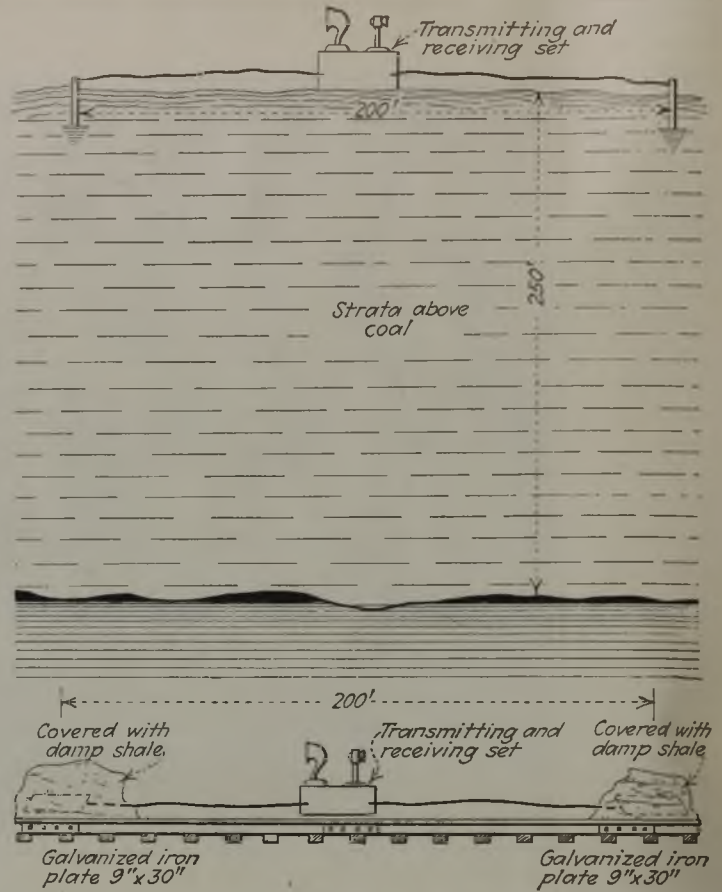 Transmitting and
receiving set
200'
250'
Strata above
coal
200'
Covered with
damp shale
Transmitting and
receiving set
Covered with
damp shale
Galvanized iron
plate 9"x30"
Galvanized iron
plate 9"x30"